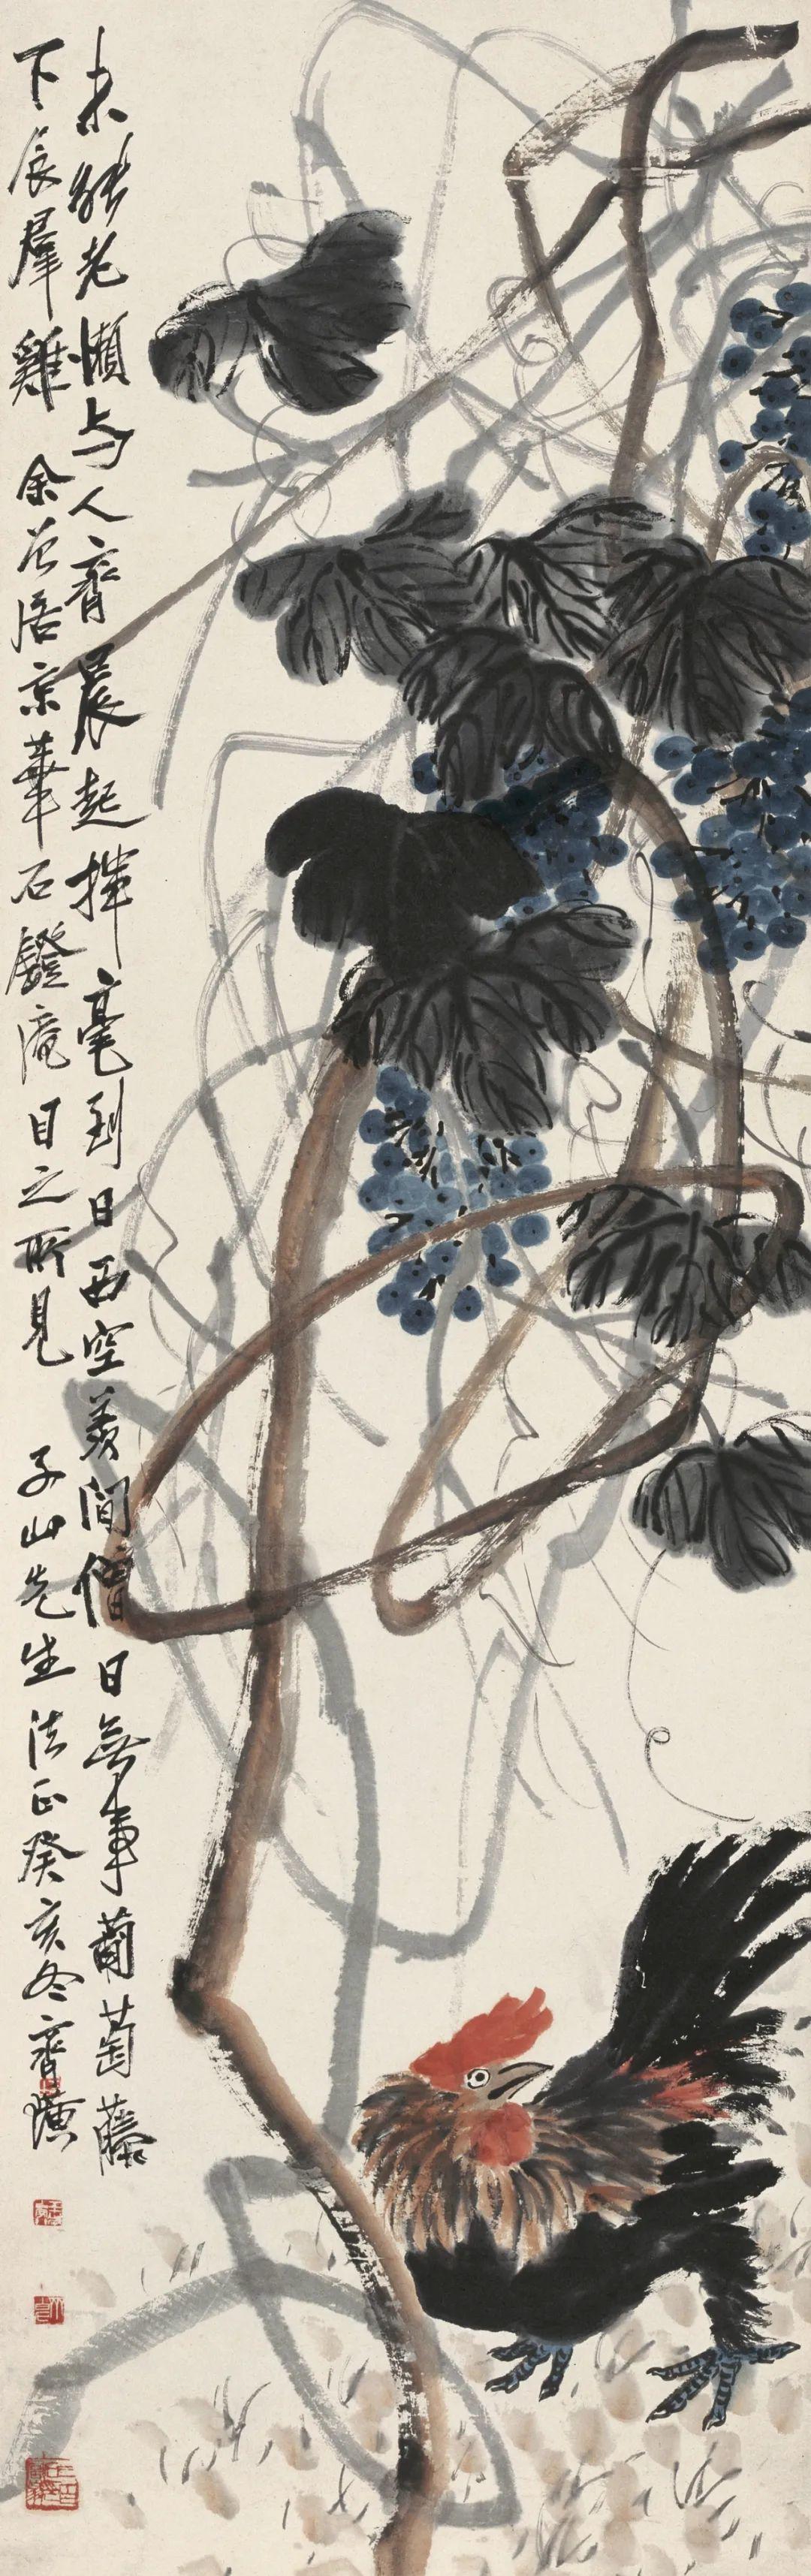 未能老懶與人齊晨起揮毫到日西空羨閒僧日無事葡萄藤
下辰群雞 余曾居京華石鐙庵目之所見 子山先生法正癸亥冬齊璜